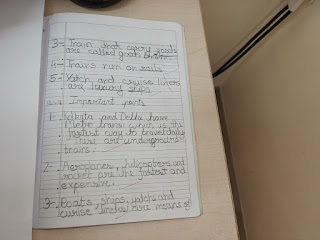 3- Train that carry goods
are called goods train
4- Trains run on rails
5- Yatch and cruise liners
are luxury ships
Important parts
1- Kolkata and Delhi have
Metro trains which is the
fastest way to travel daily
These are underground
trains.
2- Aeroplanes, helicopters and
rocket are the fastest and
expensive.
3- Boats, ships, yatch and
curise liners are means of